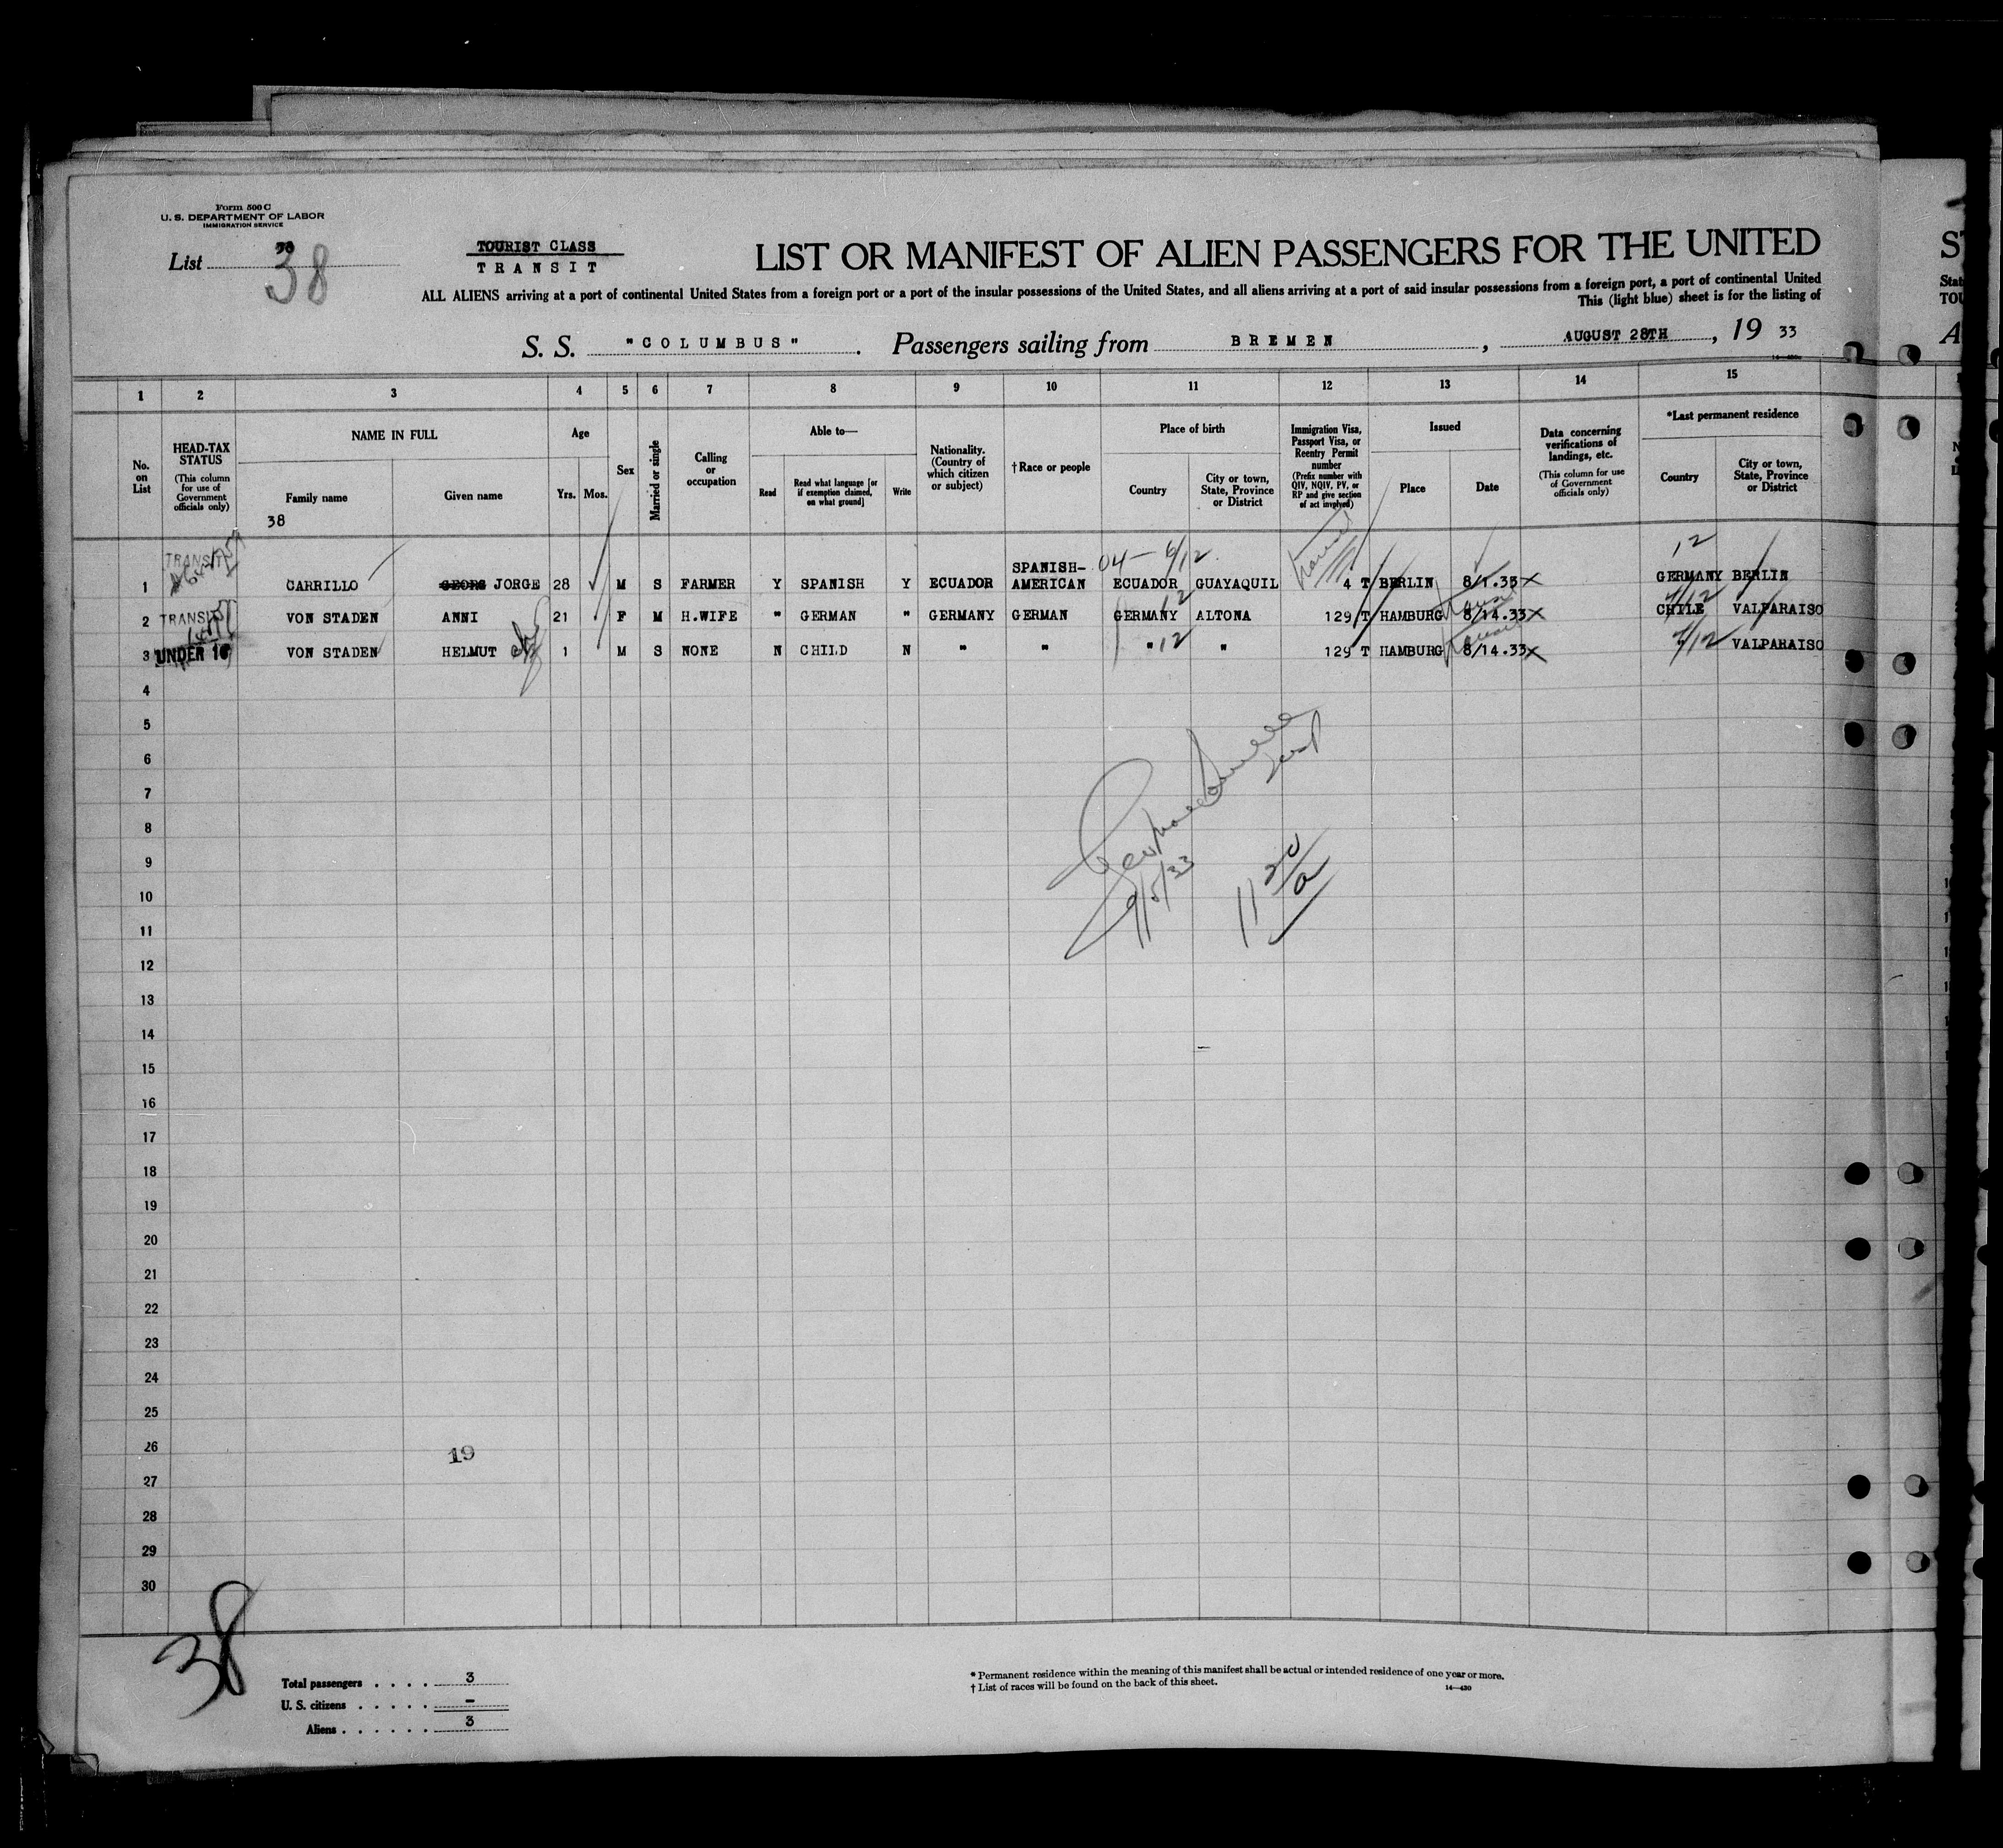 Form 500 C
U. S. DEPARTMENT OF LABOR
IMMIGRATION SERVICE
List 38
TOURIST CLASS
TRANSIT
LIST OR MANIFEST OF ALIEN PASSENGERS FOR THE UNITED
ALL ALIENS arriving at a port of continental United States from a foreign port or a port of the insular possessions of the United States, and all aliens arriving at a port of said insular possessions from a foreign port, a port of continental United
This (light blue) sheet is for the listing of
S. S. "COLUMBUS". Passengers sailing from BREMEN, AUGUST 28TH, 19 33
1 2 3 4 5 6 7 8 9 10 11 12 13 14 15
No. on List
HEAD-TAX STATUS
(This column for use of Government officials only)
NAME IN FULL
Family name
Given name
Age
Yrs. Mos.
Sex
Married or single
Calling or occupation
Able to—
Read
Read what language [or if exemption claimed, on what ground]
Write
Nationality. (Country of which citizen or subject)
† Race or people
Place of birth
Country
City or town, State, Province or District
Immigration Visa, Passport Visa, or Reentry Permit number
(Prefix number with QIV, NQIV, PV, or RP and give section of act involved)
Issued
Place
Date
Data concerning verifications of landings, etc.
(This column for use of Government officials only)
*Last permanent residence
Country
City or town, State, Province or District
38
04— 6/12 12
1 TRANSIT CARRILLO GEORG JORGE 28 M S FARMER Y SPANISH Y ECUADOR SPANISH-AMERICAN ECUADOR GUAYAQUIL 4 T BERLIN 8/1.33 GERMANY BERLIN
2 TRANSIT VON STADEN ANNI 21 F M H.WIFE " GERMAN " GERMANY GERMAN GERMANY ALTONA 129 T HAMBURG 8/14.33 CHILE VALPARAISO
3 UNDER 16 VON STADEN HELMUT 1 M S NONE N CHILD N " " " 12 " 129 T HAMBURG 8/14.33 " VALPARAISO
4
5
6
7
8
9
9/5/33
10
11
12
13
14
15
16
17
18
19
20
21
22
23
24
25
26
19
27
28
29
30
38
Total passengers . . . . 3
U. S. citizens . . . . . –
Aliens . . . . . . 3
* Permanent residence within the meaning of this manifest shall be actual or intended residence of one year or more.
† List of races will be found on the back of this sheet.
14—430